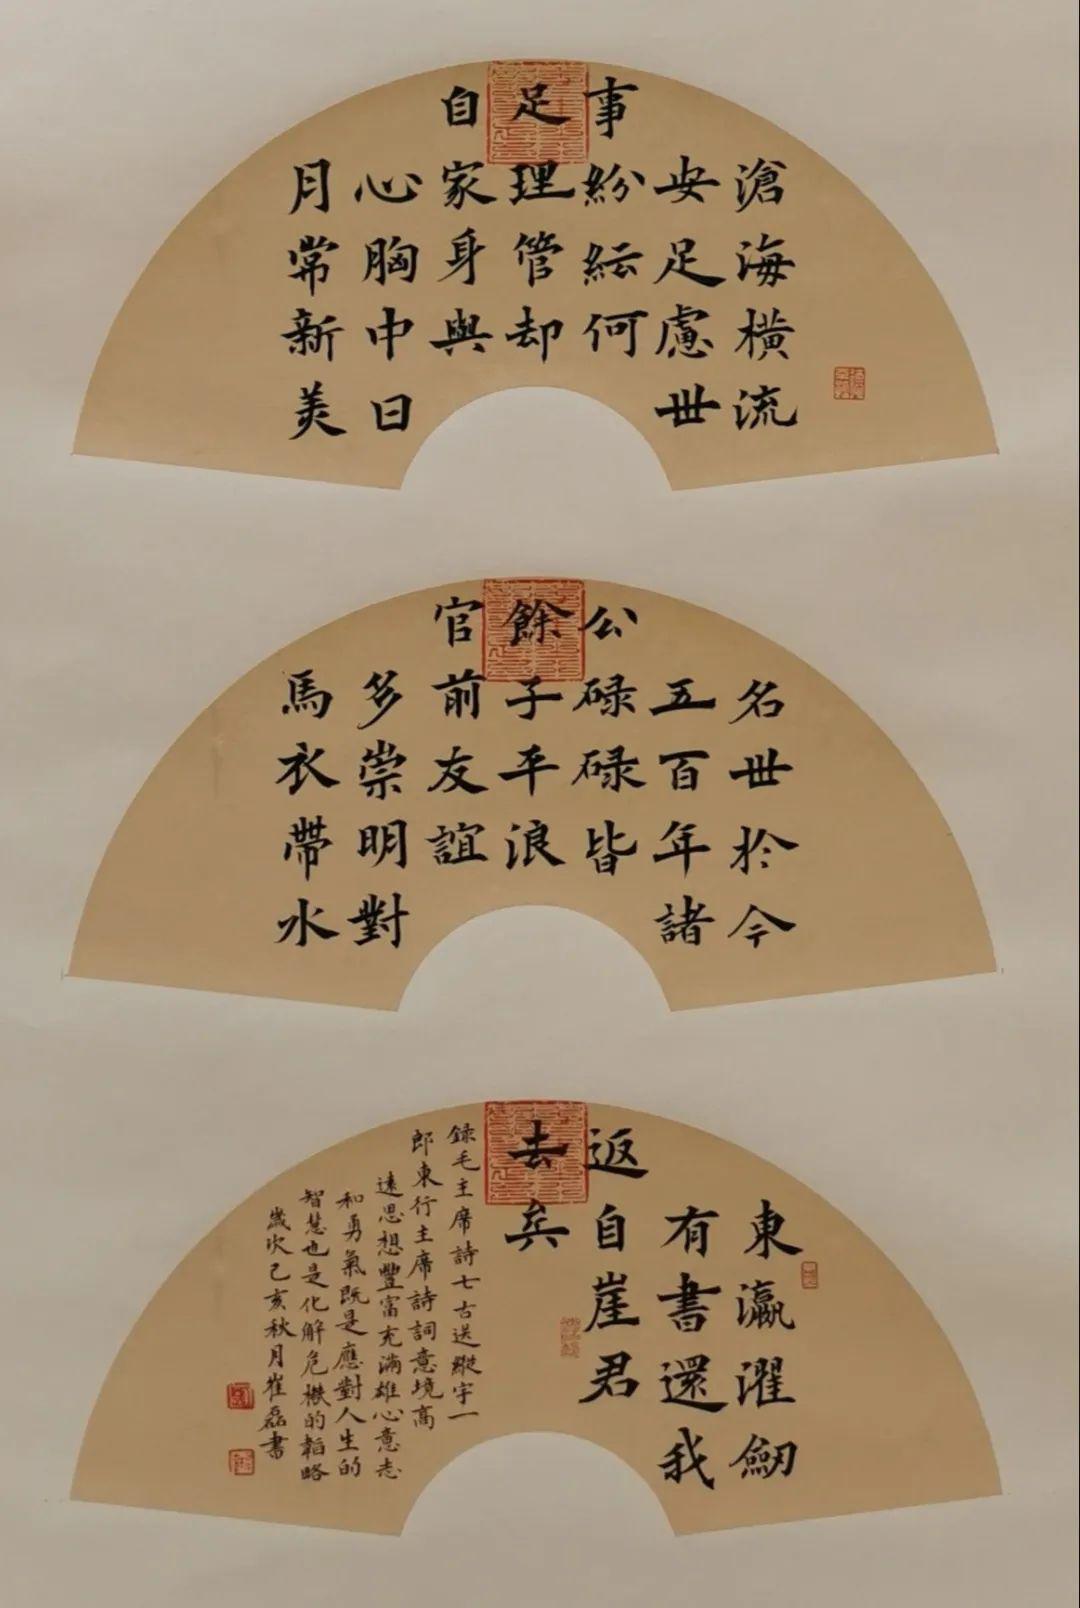 滄海橫流
安足慮世
事紛紜何
足理管却
自家身與
心胸中日
月常新美
名世於今
五百年諸
公碌碌皆
餘子平浪
官前友誼
多崇明對
馬衣帶水
東瀛濯劒
有書還我
返自崖君
去矣
録毛主席詩七古送縱宇一
郎東行主席詩詞意境高
遠思想豐富充滿雄心意志
和勇氣既是應對人生的
智慧也是化解危機的韜略
歲次己亥秋月崔磊書